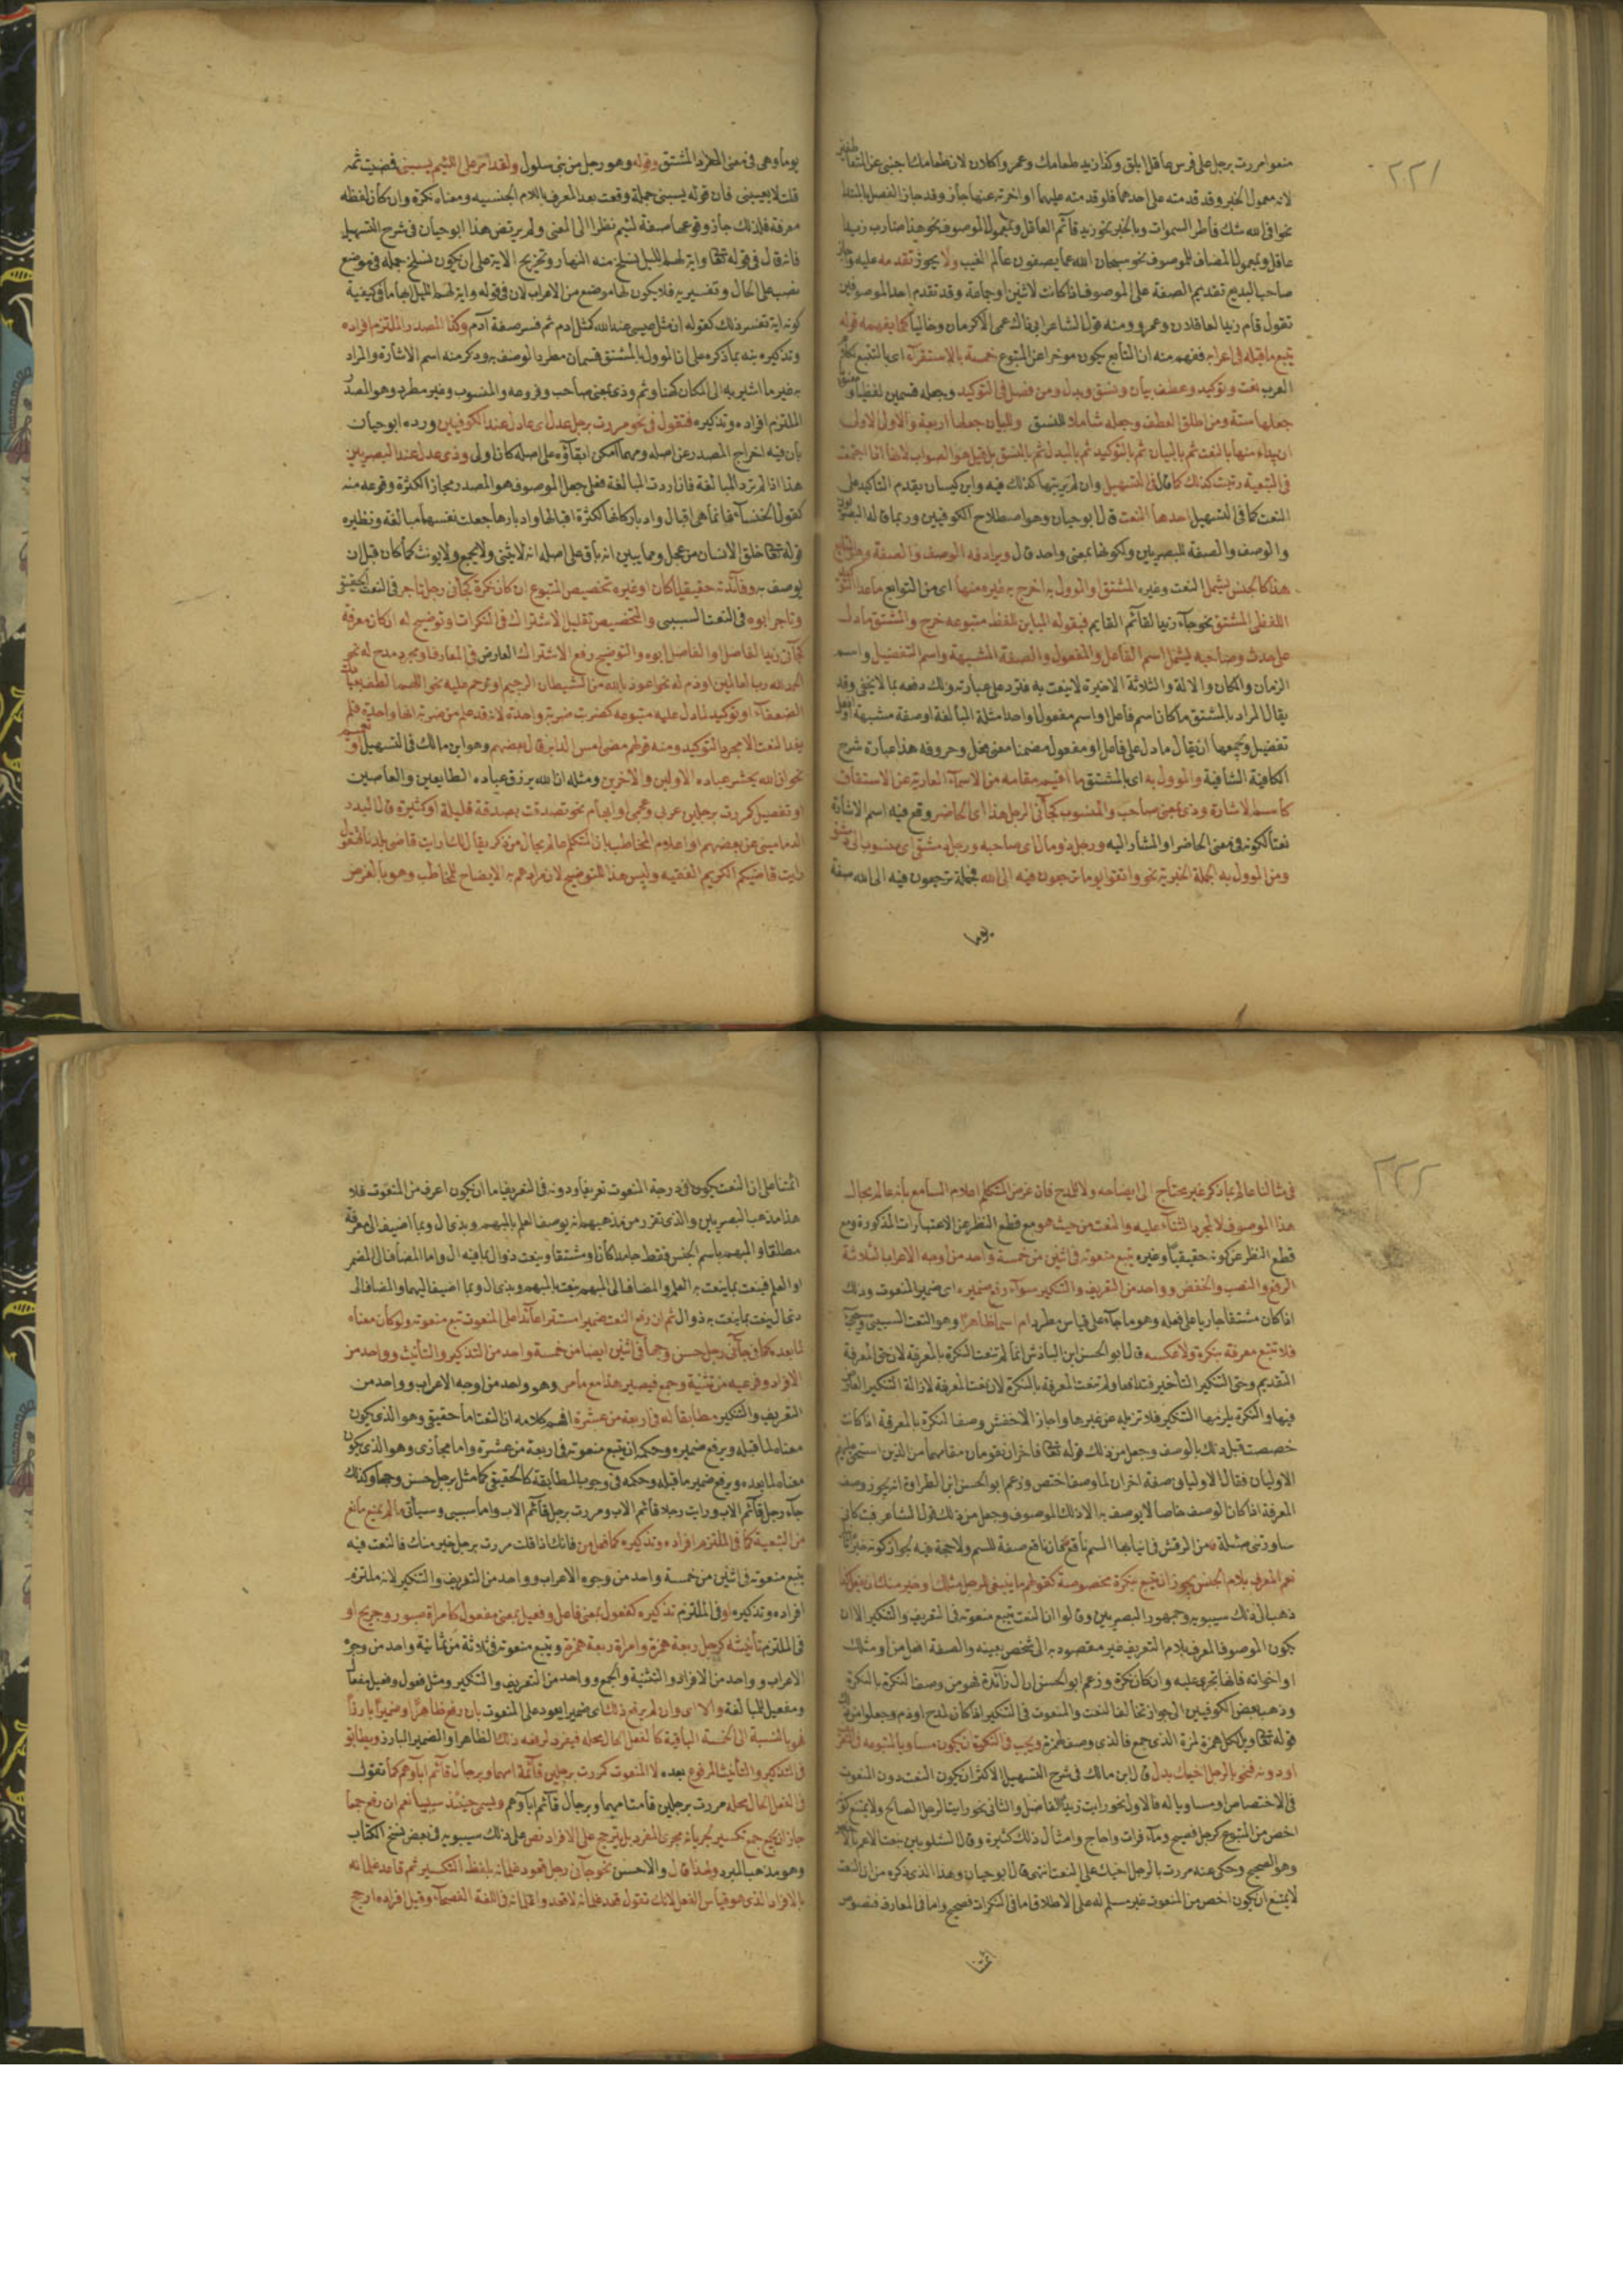 ٢٢١
منعوا مررت برجل على فرس عاقل ابلق وكذا زيد طعامك وعمرو اكلان لان طعامك اجنبى عن المتعاطفين
لانه معمول الخبر وقد قدمته على احدهما فلو قدمته عليهما او اخرته عنهما جاز وقد جاز الفصل بالمبتدا
نحو افى الله شك فاطر السموات وبالخبر نحو زيد قائم العاقل وبمعمول الموصوف نحو هذا ضارب زيدا
عاقل وبمعمول المضاف للموصوف نحو سبحان الله عما يصفون عالم الغيب ولا يجوز تقدمه عليه
صاحب البديع تقديم الصفة على الموصوف اذا كانت لاثنين او جماعة وقد تقدم احد الموصوفين
تقول قام زيد العاقلان وعمرو ومنه قول الشاعر ابى ذاك عمى الاكرمان وخاليا كما يفهمه قوله
يتبع ما قبله فى اعرابه ففهم منه ان التابع يكون موخرا عن المتبوع خمسة بالاستقرآء اى بالتتبع
العرب نعت وتوكيد وعطف بيان ونسق وبدل ومن فصل فى التوكيد وجعله قسمين لفظيا ومعنويا
جعلها ستة ومن اطلق العطف وجعله شاملا للنسق والبيان جعلها اربعة والاول الاولى
ان يبداء منها بالنعت ثم بالبيان ثم بالتوكيد ثم بالبدل ثم بالنسق بل قيل هو الصواب لانها اذا اجتمعت
فى التبعية رتبت كذلك كما قال فى التسهيل وان لم يرتبها كذلك فيه وابن كيسان يقدم التاكيد على
النعت كما فى التسهيل احدها النعت قال ابو حيان وهو اصطلاح الكوفيين وربما قاله البصريون
والوصف والصفة للبصريين ولكونها بمعنى واحد قال ويرادفه الوصف والصفة وهو التابع
هذا كالجنس يشمل النعت وغيره المشتق والموول به اخرج به غيره منها اى من التوابع ما عدا التوكيد
اللفظى المشتق نحو جآء زيد القائم القايم فبقوله المباين للفظ متبوعه خرج والمشتق ما دل
على حدث وصاحبه يشمل اسم الفاعل والمفعول والصفة المشبهة واسم التفضيل واسم
الزمان والمكان والالة والثلاثة الاخيرة لا ينعت به فترد على عبارته ولك دفعه بما لا يخفى وقد
يقال المراد بالمشتق ما كان اسم فاعل او اسم مفعول او احد امثلة المبالغة او صفة مشبهة او افعل
تفضيل ويجمعها ان يقال ما دل على فاعل او مفعول مضمنا معنى فعل وحروفه هذا عبارة شرح
الكافية الشافية والموول به اى بالمشتق ما اقيم مقامه من الاسمآء العارية عن الاشتقاق
كاسم الاشارة وذى بمعنى صاحب والمنسوب كجآنى الرجل هذا اى الحاضر وقع فيه اسم الاشارة
نعتا لكونه فى معنى الحاضر او المشار اليه ورجل ذو مال اى صاحبه ورجل دمشقى اى منسوب الى دمشق
ومن الموول به الجملة الخبرية نحو واتقوا يوما ترجعون فيه الى الله فجملة ترجعون فيه الى الله صفة
يوما
يوما وهى فى معنى المفرد المشتق وقوله وهو رجل من بنى سلول ولقد امر على اللئيم يسبنى فمضيت ثمه
قلت لا يعنينى فان قوله يسبنى جملة وقعت بعد المعرف باللام الجنسيه ومعناه نكرة وان كان لفظه
معرفة فلذلك جاز وقوعها صفة لئيم نظرا الى المعنى ولم يرتض هذا ابو حيان فى شرح التسهيل
فانه قال فى قوله تعالى واية لهم الليل نسلخ منه النهار وتخريج الاية على ان يكون نسلخ جملة فى موضع
نصب على الحال وتفسيرية فلا يكون لها موضع من الاعراب لان فى قوله واية لهم الليل ابهاما فى كيفية
كونه اية تفسر ذلك كقوله ان مثل عيسى عند الله كمثل ادم ثم فسر صفة آدم وكذا المصدر الملتزم افراده
وتذكيره بنه بما ذكره على ان الموول بالمشتق قسمان مطرد الوصف به وذكر منه اسم الاشارة والمراد
به غير ما اشير به الى المكان كهنا وثم وذى بمعنى صاحب وفروعه والمنسوب وغير مطرد وهو المصدر
الملتزم افراده وتذكيره فتقول فى نحو مررت برجل عدل اى عادل عند الكوفيين ورده ابو حيان
بان فيه اخراج المصدر عن اصله ومهما امكن ابقآؤه على اصله كان اولى وذى عدل عند البصريين
هذا اذا لم ترد المبالغة فان اردت المبالغة فعلى جعل الموصوف هو المصدر مجازا لكثرة وقوعه منه
كقول الخنسآء فانما هى اقبال وادبار كانها لكثرة اقبالها وادبارها جعلت نفسها مبالغة ونظيره
قوله تعالى خلق الانسان من عجل ومما يبين انه باق على اصله انه لا يثنى ولا يجمع ولا يونث كما كان قبل ان
يوصف به وفآئدته حقيقيا كان او غيره تخصيص المتبوع ان كان نكرة كجآنى رجل تاجر فى النعت الحقيقى
وتاجر ابوه فى النعت السببى والتخصيص تقليل الاشتراك فى النكرات وتوضيح له ان كان معرفة
كجآنى زيد الفاضل او الفاضل ابوه والتوضيح رفع الاشتراك العارض فى المعارف او مجرد مدح له نحو
الحمد لله رب العالمين او ذم له نحو اعوذ بالله من الشيطان الرجيم او ترحم عليه نحو اللهم الطف بعبادك
الضعفآء او توكيد لما دل عليه متبوعه كضربت ضربة واحدة لانه قد علم من ضربة انها واحدة فلم
يفد النعت الا مجرد التوكيد ومنه قولهم مضى امس الدابر قال بعضهم وهو ابن مالك فى التسهيل او تعميم
نحو ان الله يحشر عباده الاولين والاخرين ومثله ان الله يرزق عباده الطايعين والعاصين
او تفصيل كمررت برجلين عربى وعجمى او ابهام نحو تصدقت بصدقة قليلة او كثيرة قال البدر
الدمامينى عن بعضهم او اعلام المخاطب بان المتكلم عالم بحال من ذكر يقال لك رايت قاضى بلدنا فتقول
رايت قاضيكم الكريم الفقيه وليس هذا للتوضيح لان مرادهم به الايضاح للمخاطب وهو بالغرض
٢٢٢
فى مثالنا عالم بما ذكر غير محتاج الى ايضاحه ولا للمدح فان غرض المتكلم اعلام السامع بانه عالم بحال
هذا الموصوف لا لمجرد الثنآء عليه والنعت من حيث هو مع قطع النظر عن الاعتبارات المذكورة ومع
قطع النظر عن كونه حقيقيا وغيره يتبع منعوته فى اثنين من خمسة واحد من اوجه الاعراب الثلاثة
الرفع والنصب والخفض وواحد من التعريف والتنكير سوآء رفع ضميره اى ضمير المنعوت وذلك
اذا كان مشتقا جاريا على فعله وهو ما جآء على قياس مطرد ام اسما ظاهرا وهو النعت السببى
فلا تتبع معرفة بنكرة ولا عكسه قال ابو الحسن ابن الباذش انما لم تنعت النكرة بالمعرفة لان حق المعرفة
التقديم وحق التنكير التاخير فتدافعا ولم تنعت المعرفة بالنكرة لان نعت المعرفة لازالة التنكير العارض
فيها والنكرة يلزمها التنكير فلا تزيله عن غيرها واجاز الاخفش وصف النكرة بالمعرفة اذا كانت
خصصت قبل ذلك بالوصف وجعل من ذلك قوله تعالى فاخران يقومان مقامهما من الذين استحق عليهم
الاوليان فقال الاوليان صفة اخران لما وصفا اختص وزعم ابو الحسن ابن الطراوة انه يجوز وصف
المعرفة اذا كان الوصف خاصا لا يوصف به الا ذلك الموصوف وجعل من ذلك قول الشاعر فبت كانى
ساورتنى ضئيلة من الرقش فى انيابها السم ناقع فان ناقع صفة للسم ولا حجة فيه لجواز كونه خبرا
نعم المعرف بلام الجنس يجوز ان يتبع بنكرة مخصوصة كقولهم ما ينبغى للرجل مثلك او خير منك ان يفعل كذا
ذهب الى ذلك سيبويه وجمهور البصريين وقالوا ان النعت يتبع منعوته فى التعريف والتنكير الا ان
يكون الموصوف المعرف بلام التعريف غير مقصود به الى شخص بعينه والصفة افضل من او مثلك
او اخواته فانها تجرى عليه وان كان نكرة وزعم ابو الحسن ان ال زآئدة فهو من وصف النكرة بالنكرة
وذهب بعض الكوفيين الى جواز تخالف النعت والمنعوت فى التنكير اذا كان لمدح او ذم وجعلوا منه
قوله تعالى ويل لكل همزة لمزة الذى جمع فالذى وصف لهمزة ويجب فى النكرة ان يكون مساويا لمتبوعه فى التعريف
او دونه فنحو بالرجل اخيك بدل قال ابن مالك فى شرح التسهيل الاكثر ان يكون النعت دون المنعوت
فى الاختصاص او مساويا له فالاول نحو رايت زيدا الفاضل والثانى نحو رايت الرجل الصالح ولا يمتنع كونه
اخص من المتبوع كرجل فصيح ومآء فرات واجاج وامثال ذلك كثيرة وقال الشلوبين ينعت الاعم بالاخص
وهو الصحيح وحكى عنه مررت بالرجل اخيك على النعت انتهى قال ابو حيان وهذا الذى ذكره من ان النعت
لا يمتنع ان يكون اخص من المنعوت غير مسلم له على الاطلاق اما فى النكرات فصحيح واما فى المعارف فنصوص
ائمتنا
ائمتنا على ان النعت يكون فى درجة المنعوت تعريفا ودونه فى التعريف اما ان يكون اعرف من المنعوت فلا
هذا مذهب البصريين والذى تقرر من مذهبهم انه يوصف العلم بالمبهم وبذى ال وبما اضيف الى معرفة
مطلقا والمبهم باسم الجنس فقط جامدا كان او مشتقا وينعت ذو ال بما فيه ال واما المضاف الى المضمر
او العلم فينعت بما ينعت به العلم والمضاف الى المبهم ينعت بالمبهم وبذى ال وبما اضيف اليهما والمضاف الى
ذى ال ينعت بما ينعت به ذو ال ثم ان رفع النعت ضميرا مستترا عآئدا على المنعوت تبع منعوته ولو كان معناه
لما بعده كما فى جآنى رجل حسن وجها فى اثنين ايضا من خمسة واحد من التذكير والتأنيث وواحد من
الافراد وفرعيه من تثنية وجمع فيصير هذا مع ما مر وهو واحد من اوجه الاعراب وواحد من
التعريف والتنكير مطابقا له فى اربعة من عشرة افهم كلامه ان النعت اما حقيقى وهو الذى يكون
معناه لما قبله ويرفع ضميره وحكمه ان يتبع منعوته فى اربعة من عشرة واما مجازى وهو الذى يكون
معناه لما بعده ويرفع ضمير ما قبله وحكمه فى وجوب المطابقة كالحقيقى كما مثل برجل حسن وجها وكذلك
جآء رجل قآئم الاب ورايت رجلا قآئم الاب ومررت برجل قآئم الاب واما سببى وسيأتى ما لم يمنع مانع
من التبعية كما فى الملتزم افراده وتذكيره كما فعل من فانك اذا قلت مررت برجل خير منك فالنعت فيه
يتبع منعوته فى اثنين من خمسة واحد من وجوه الاعراب وواحد من التعريف والتنكير لانه ملتزم
افراده وتذكيره او فى الملتزم تذكيره كفعول بمعنى فاعل وفعيل بمعنى مفعول كامراة صبور وجريح او
فى الملتزم تأنيثه كرجل ربعة همزة وامراة ربعة همزة ويتبع منعوته فى ثلاثة من ثمانية واحد من وجوه
الاعراب وواحد من الافراد والتثنية والجمع وواحد من التعريف والتنكير ومثل فعول وفعيل مفعال
ومفعيل للمبالغة والا اى وان لم يرفع ذلك اى ضميرا يعود على المنعوت بان رفع ظاهرا او ضميرا بارزا
فهو بالنسبة الى الخمسة الباقية كالفعل الحال محله فيفرد لرفعه ذلك الظاهر او الضمير البارز ويطابق
فى التذكير والتأنيث المرفوع بعده لا المنعوت كمررت برجلين قآئمة امهما وبرجال قآئم اباؤهم كما تقول
فى الفعل الحال محله مررت برجلين قامت امهما وبرجال قام اباؤهم ويسمى حينئذ سببيا نعم ان رفع جمعا
جاز ان يجمع جمع تكسير لجريانه مجرى المفرد بل يترجح على الافراد نص على ذلك سيبويه فى بعض نسخ الكتاب
وهو مذهب المبرد ولهذا قال والاحسن نحو جآنى رجل قعود غلمانه بلفظ التكسير ثم قاعد غلمانه
بالافراد الذى هو قياس الفعل لانك تقول قعد غلمانه لا قعدوا غلمانه فى اللغة الفصحآء وقيل افراده ارجح